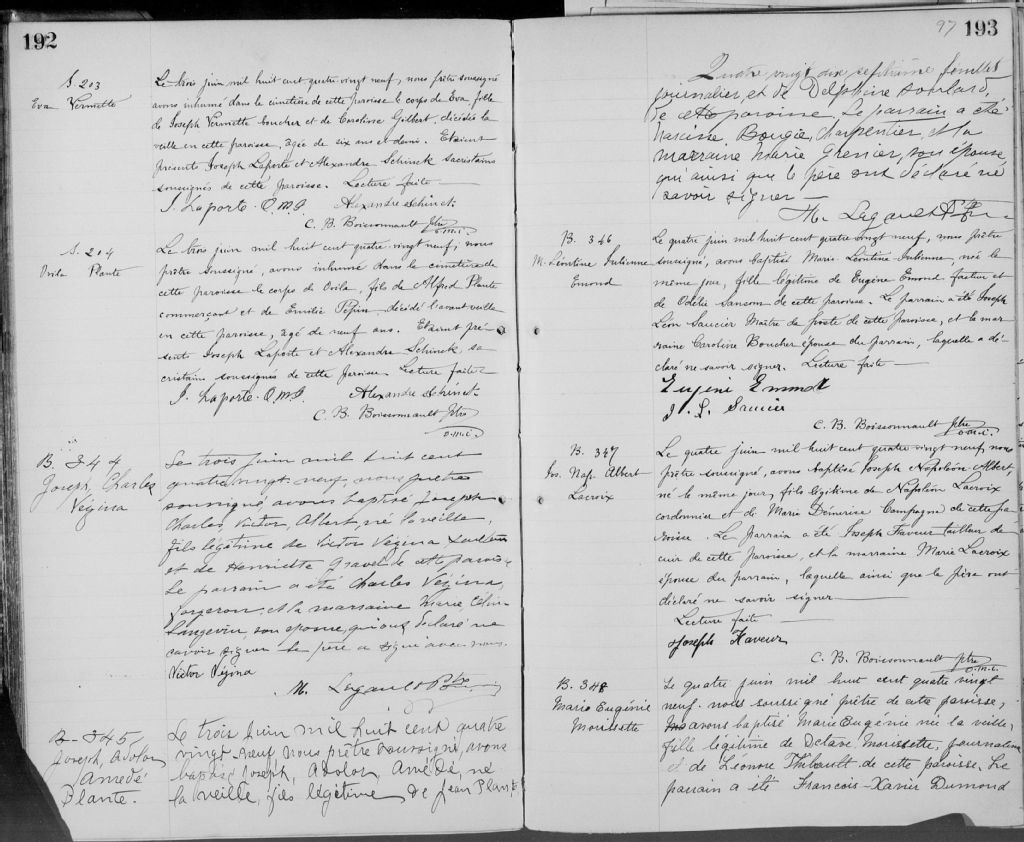 192
S. 203
Eva Vermette
Le trois juin mil huit cent quatre vingt neuf, nous prêtre soussigné
avons inhumé dans le cimetière de cette paroisse le corps de Eva fille
de Joseph Vermette boucher et de Caroline Gilbert, décédée la
veille en cette paroisse, agée de six ans et demi. Etaient
présents Joseph Laporte et Alexandre Schinck sacristains
soussignés de cette paroisse. Lecture faite
J. Laporte O.M.I. Alexandre Schinck
C. B. Boissonnault ptre
o.m.i.
S. 204
Ovila Plante
Le trois juin mil huit cent quatre vingt neuf, nous
prêtre soussigné, avons inhumé dans le cimetière de
cette paroisse le corps de Ovila, fils de Alfred Plante
commerçant et de Emilie Pépin décédé l'avant veille
en cette paroisse, agé de neuf ans. Etaient pré
sents Joseph Laporte et Alexandre Schinck, sa
cristains soussignés de cette paroisse Lecture faite
J. Laporte O.M.I. Alexandre Schinck
C. B. Boissonnault ptre
o.m.i.
B. 344
Joseph, Charles
Vézina
Le trois juin mil huit cent
quatre vingt neuf, nous prêtre
soussigné, avons baptisé Joseph
Charles Victor, Albert, né la veille,
fils légitime de Victor Vézina
et de Henriette Gravel de cette parois
Le parrain a été Charles Vézina
forgeron, et la marraine Marie, Célin
Langevin, son épouse, qui ont déclaré ne
savoir signer Le père a signé avec nous.
Victor Vézina
M. Legault Ptre
B- 345
Joseph, Adolor
Amédé
Plante.
Le trois juin mil huit cent quatre
vingt neuf nous prêtre soussigné, avons
baptisé Joseph, Adolor, Amédé, né
la veille, fils légitime de Jean Plante
97 193
Quatre vingt dix septième feuillet
journalier, et de Delphine
de cette paroisse, Le parrain a été
Narcisse Bougie, charpentier, et la
marraine Marie Grenier, son épouse
qui ainsi que le père ont déclaré ne
savoir signer
M. Legault Ptre
B. 346
M. Léontine Julienne
Emond
Le quatre juin mil huit cent quatre vingt neuf, nous prêtre
soussigné, avons baptisé Marie Léontine Julienne, née le
même jour, fille légitime de Eugène Emond facteur et
de Odélie Sansom de cette paroisse. Le parrain a été Joseph
Léon Saucier Maître de poste de cette paroisse, et la mar
raine Caroline Boucher épouse du parrain, laquelle a dé-
claré ne savoir signer. Lecture faite
Eugène Emond
J. L. Saucier
C. B. Boissonnault ptre
o.m.i.
B. 347
Jos. Nap. Albert
Lacroix
Le quatre juin mil huit cent quatre vingt neuf, nous
prêtre soussigné, avons baptisé Joseph Napoléon Albert,
né le même jour, fils légitime de Napoléon Lacroix
cordonnier et de Marie Démerise Campagna de cette pa
roisse. Le parrain a été Joseph Faveur tailleur de
cuir de cette paroisse, et la marraine Marie Lacroix
épouse du parrain, laquelle ainsi que le père ont
déclaré ne savoir signer
Lecture faite
Joseph Faveur
C. B. Boissonnault ptre
o.m.i.
B. 348
Marie Eugénie
Morissette
Le quatre juin mil huit cent quatre vingt
neuf nous soussigné prêtre de cette paroisse,
avons baptisé Marie Eugénie née la veille,
fille légitime de Octave Morissette, journalier
et de Léonore Thibault de cette paroisse. Le
parrain a été François-Xavier Dumond